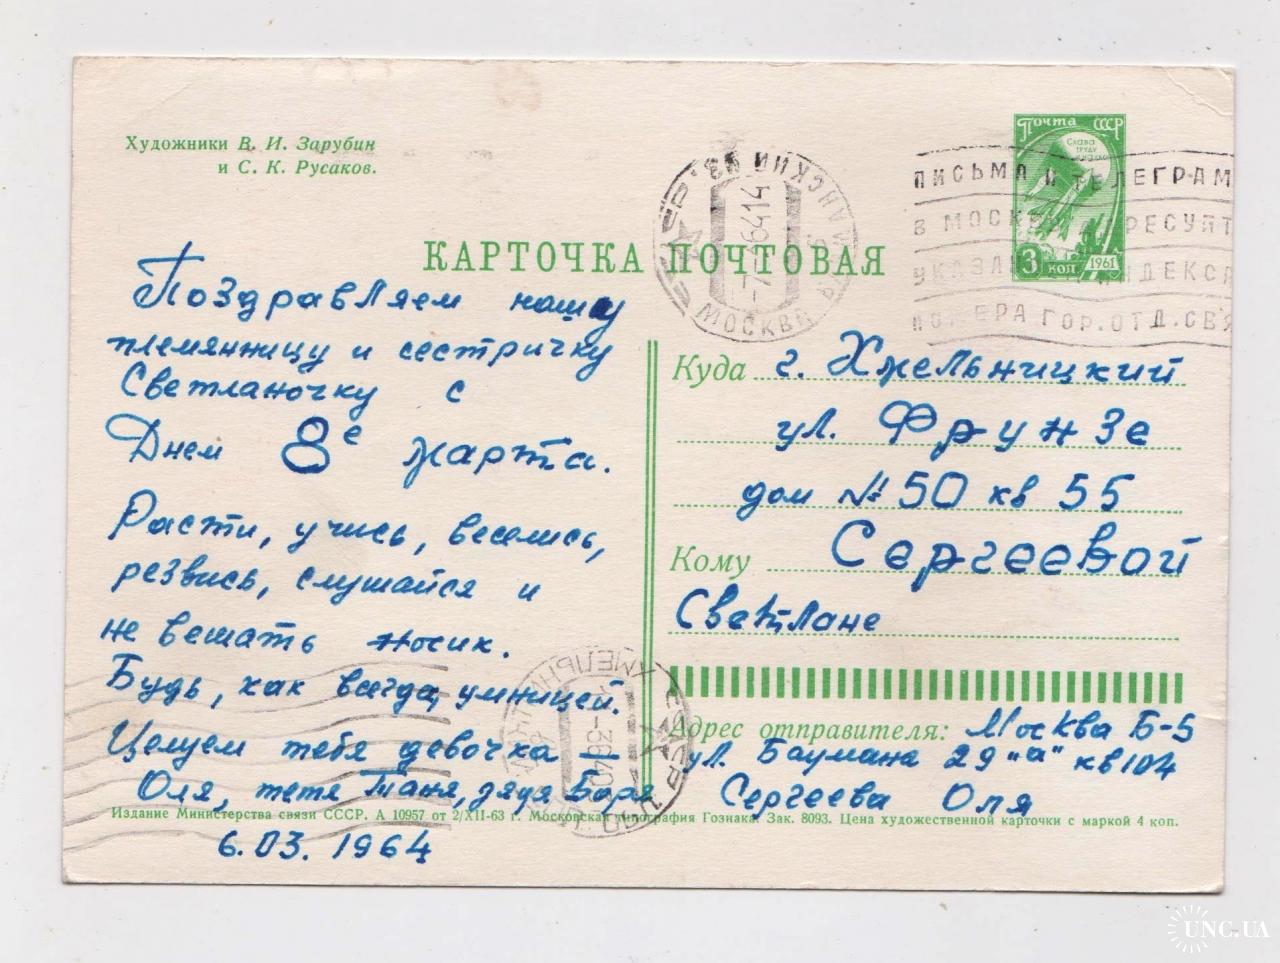 Художники В. И. Зарубин
и С. К. Русаков.
Почта СССР
Слава
труду
3 коп
1961
ПИСЬМА И ТЕЛЕГРАМ
В МОСКВ АДРЕСУЙТ
УКАЗАН ИНДЕКСА
НОМЕРА ГОР.ОТД.СВЯ
МОСКВА
КАРТОЧКА ПОЧТОВАЯ
Поздравляем нашу
племянницу и сестричку
Светланочку с
Днем 8е марта.
Расти, учись, веселись,
резвись, слушайся и
не вешать носик.
Будь, как всегда, умницей.
Целуем тебя девочка –
Оля, тетя Таня, дядя Боря
6.03.1964
Куда г. Хмельницкий
ул. Фрунзе
дом № 50 кв 55
Кому Сергеевой
Светлане
Адрес отправителя: Москва Б-5
ул. Баумана 29 „а" кв 104
Сергеева Оля
Издание Министерства связи СССР. А 10957 от 2/XII-63 г. Московская типография Гознака. Зак. 8093. Цена художественной карточки с маркой 4 коп.
UNC.UA